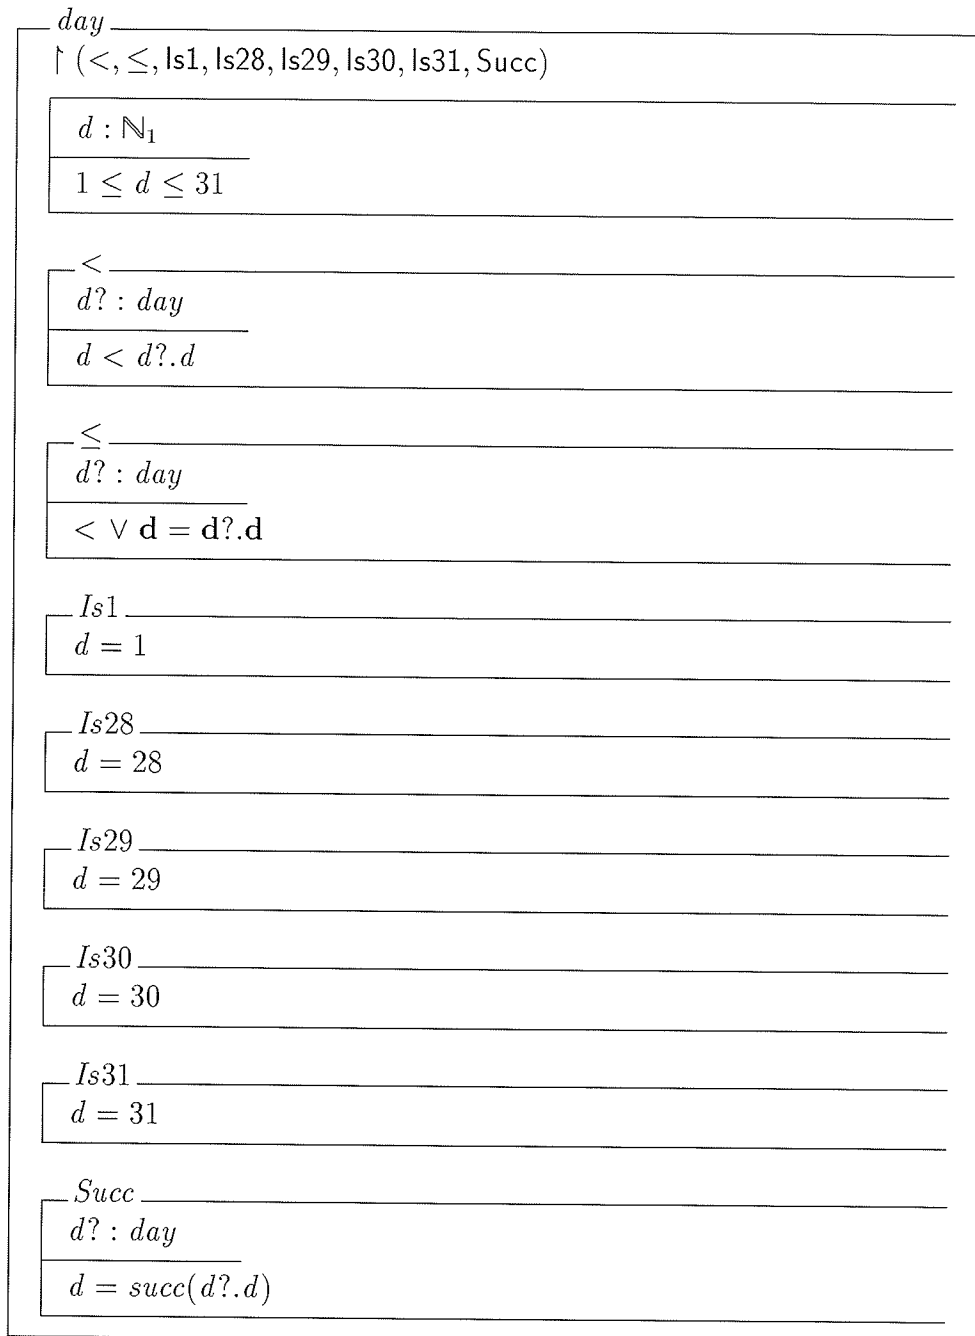 day
↾ (<, ≤, Is1, Is28, Is29, Is30, Is31, Succ)
d : ℕ₁
1 ≤ d ≤ 31
<
d? : day
d < d?.d
≤
d? : day
< ∨ d = d?.d
Is1
d = 1
Is28
d = 28
Is29
d = 29
Is30
d = 30
Is31
d = 31
Succ
d? : day
d = succ(d?.d)